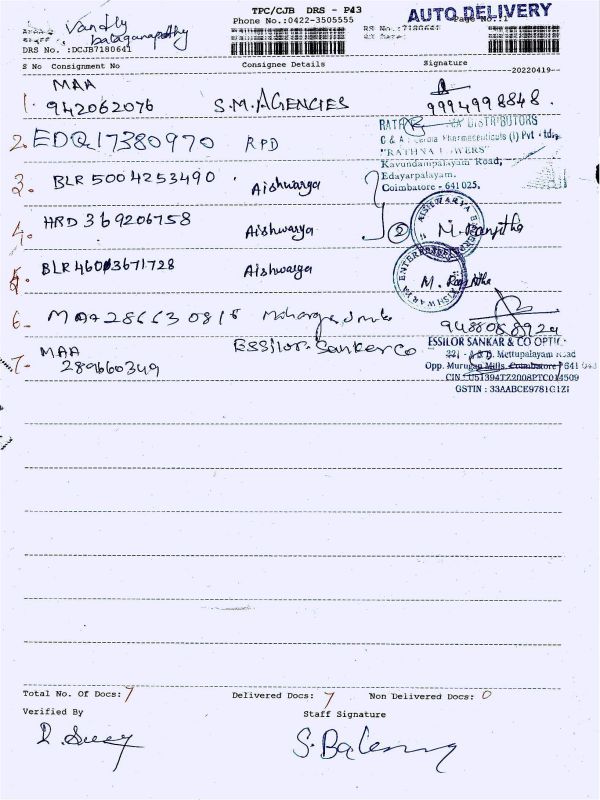 TPC/CJB DRS - P43
AUTO DELIVERY
Phone No.:0422-3505555
Page No.:1
Vandly
balaganapathy
DRS No. :DCJB7180641
S No Consignment No Consignee Details Signature
20220419
1. MAA
942062076 S.M.AGENCIES 9994998848.
2. EDQ17380970 RPD
DISTRIBUTORS
Pharmaceuticals (I) Pvt Ltd,
"RATHNA TOWERS"
Kavundampalayam Road,
Edayarpalayam,
Coimbatore - 641 025,
3. BLR 5004253490 Aishwarya
4. HRD 369206758 Aishwarya 2 M. Ranjitha
5. BLR 46003671728 Aishwarya M. Ranjitha
6. MAA286630816
7. MAA
289660349 Essilor. Sanker Co
ESSILOR SANKAR & CO OPTIC
Mettupalayam Road
Opp. Murugan Mills, Coimbatore 641 043
CIN : U51394TZ2008PTC014509
GSTIN : 33AABCE9781G1ZI
Total No. Of Docs: 7 Delivered Docs: 7 Non Delivered Docs: 0
Verified By Staff Signature